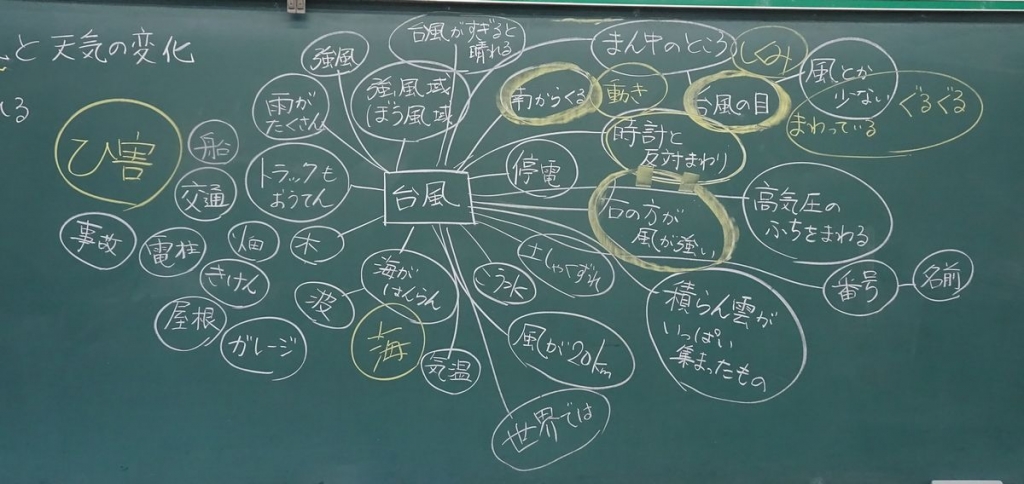 と 天気の変化
れる
ひ害
船
交通
事故
電柱
畑
きけん
屋根
ガレージ
強風
雨が
たくさん
トラックも
おうてん
木
波
海
強風域
ぼう風域
台風がすぎると
晴れる
台風
海が
はんらん
気温
こう水
土しゃくずれ
風が20km
世界では
停電
南からくる
動き
まん中のところ
台風の目
しくみ
風とか
少ない
ぐるぐる
まわっている
時計と
反対まわり
右の方が
風が強い
高気圧の
ふちをまわる
積らん雲が
いっぱい
集まったもの
番号
名前